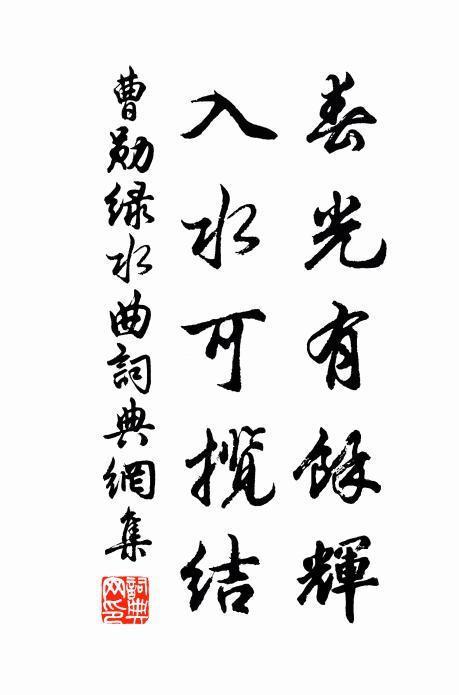 春光有餘輝
入水可攬結
曹勛绿水曲詞典網集
詞典網印